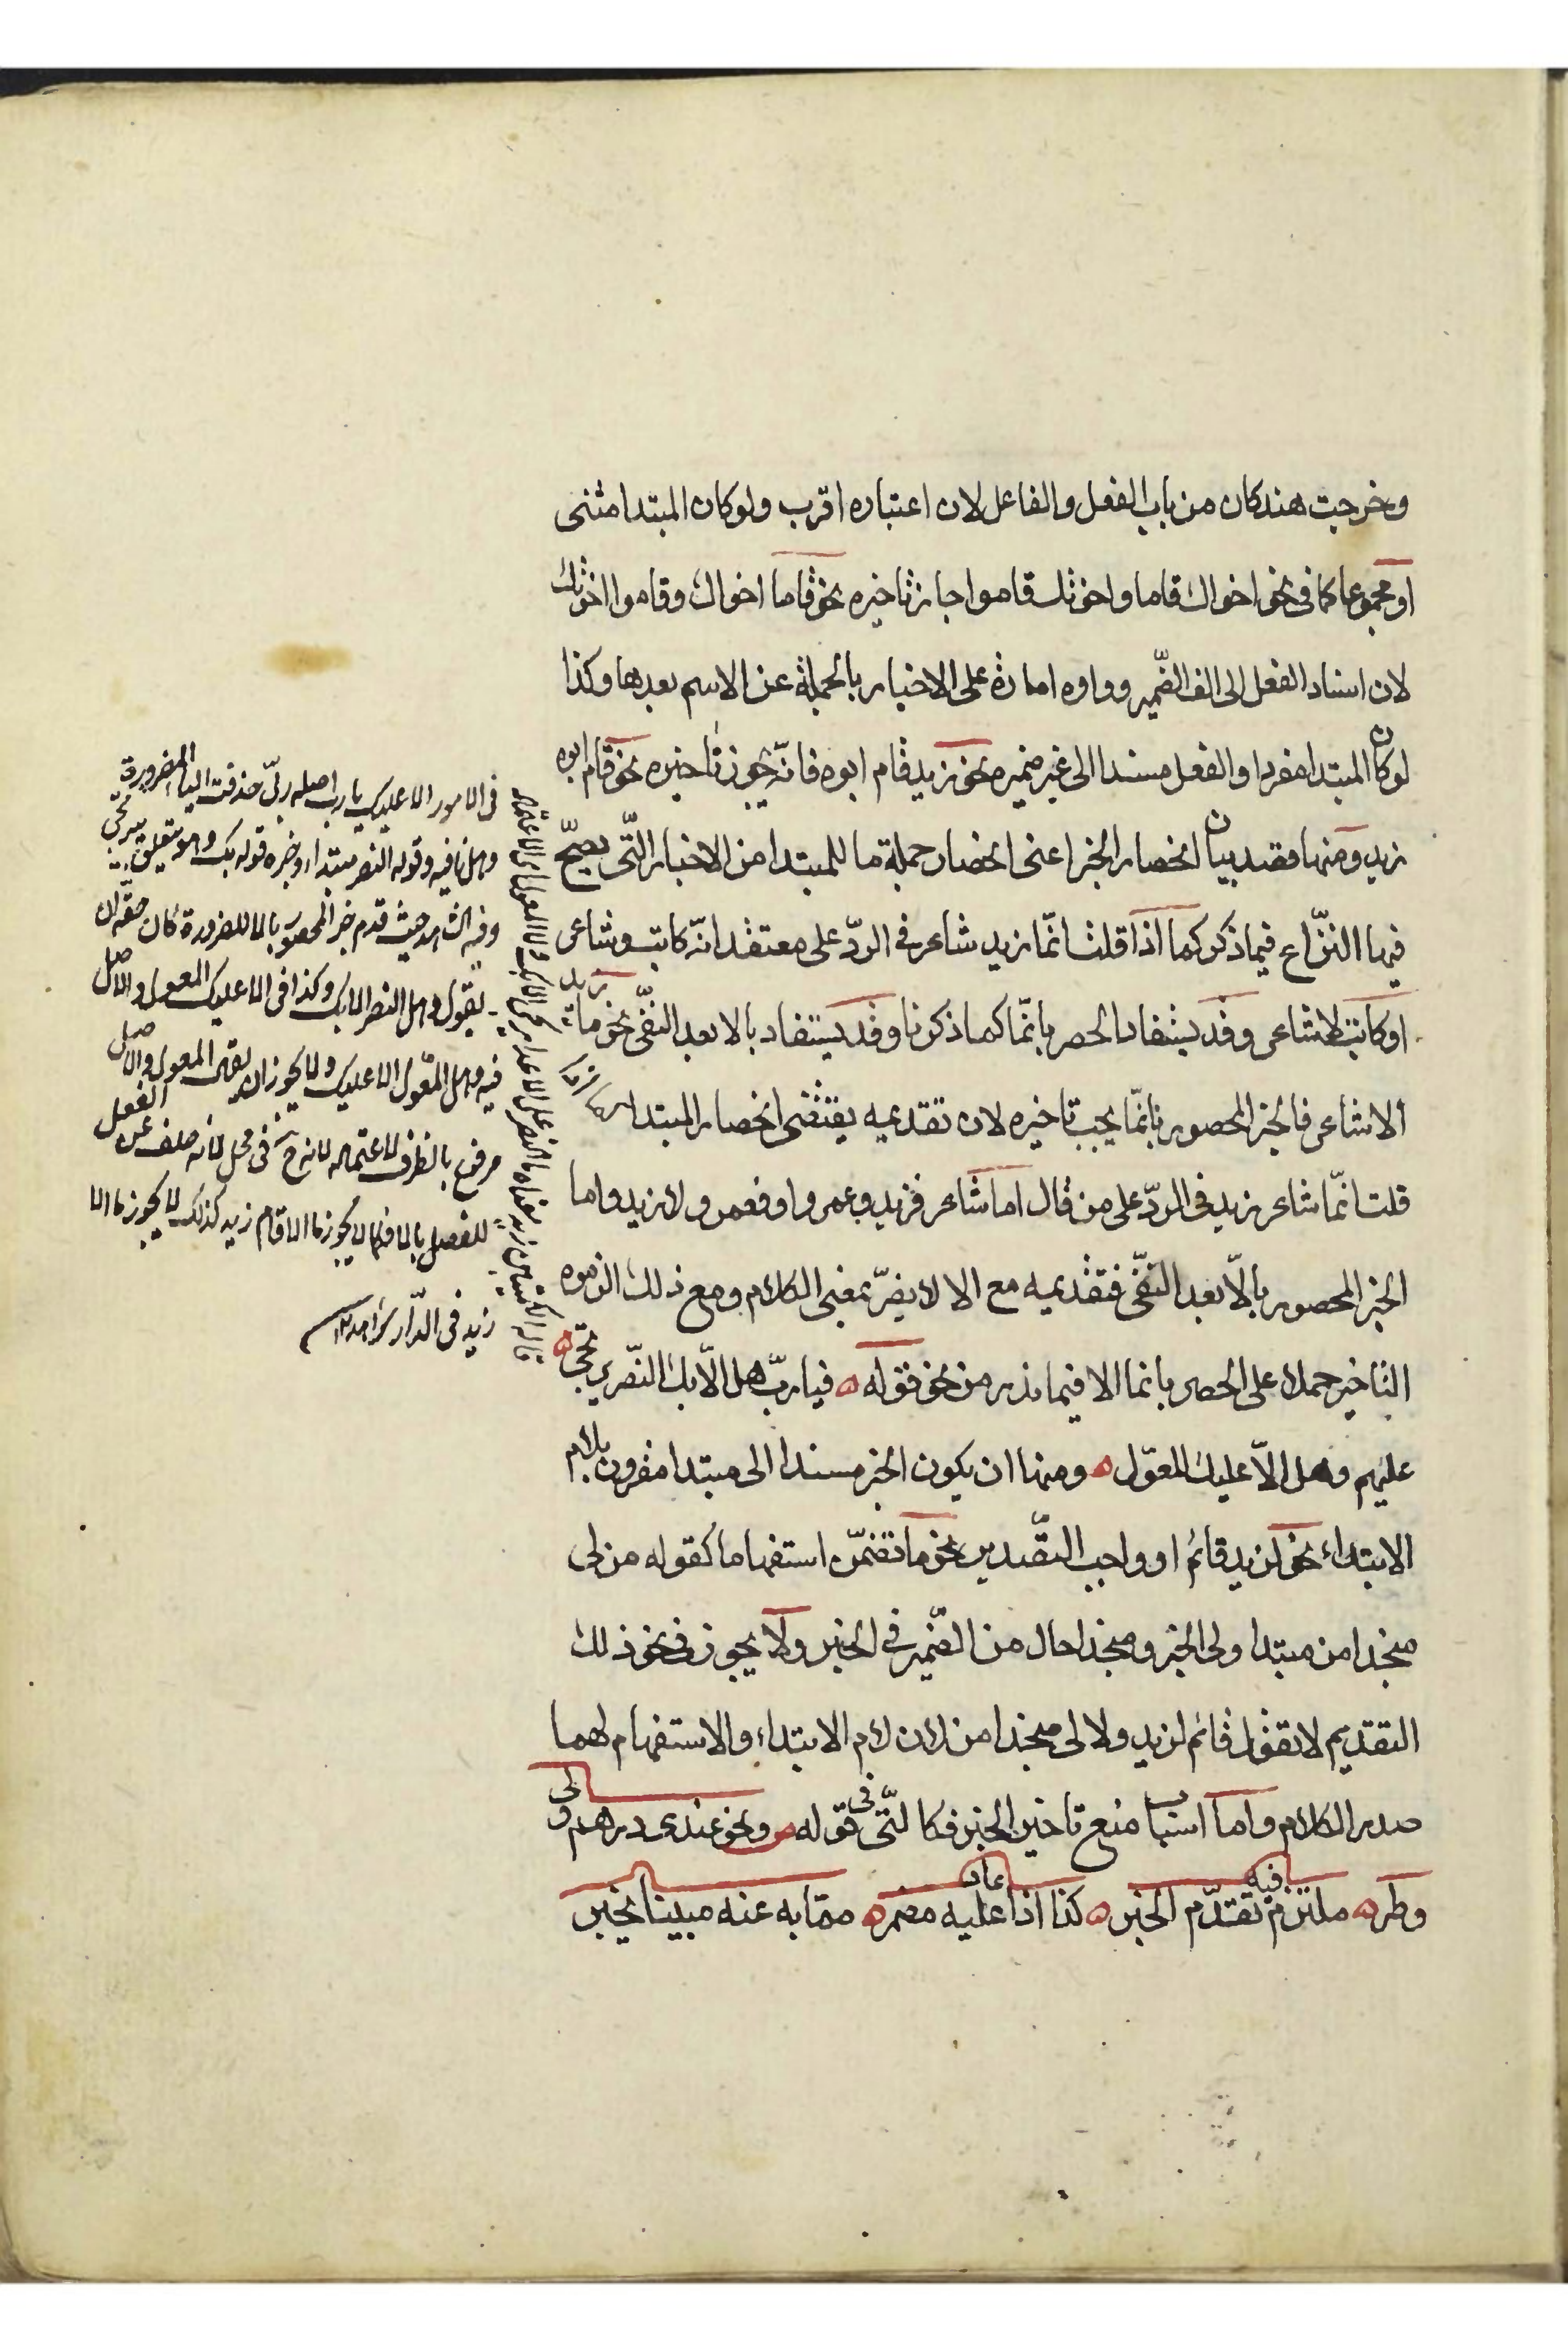 وخرجت هند كان من باب الفعل والفاعل لان اعتباره اقرب ولو كان المبتدا مثنى
او مجموعا كما فى نحو اخواك قاما واخوتك قاموا جاز تاخيره نحو قاما اخواك وقاموا اخوتك
لان اسناد الفعل الى الف الضّمير وواوه امارة على الاخبار بالجملة عن الاسم بعدها وكذا
لو كان المبتدا مفردا والفعل مسندا الى غير ضميره نحو زيد قام ابوه فانّه يجوز تاخيره نحو قام ابوه
زيد ومنها قصد بيان انحصار الخبر اعنى انحصار جملة ما للمبتدا من الاخبار التّى يصحّ
فيها النزّاع فيما ذكر كما اذا قلت انّما زيد شاعر فى الردّ على معتقد انّه كاتب وشاعر
او كاتب لا شاعر وقد يستفاد الحصر بانّما كما ذكرنا وقد يستفاد بالا بعد النفّى نحو ما زيد
الا شاعر فالخبر المحصور بانّما يجب تاخيره لان تقديمه يقتضى انحصار المبتدا
قلت انّما شاعر زيد فى الردّ على من قال اما شاعر فزيد وعمرو او فعمرو لا زيد واما
الخبر المحصور بالّا بعد النفّى فتقديمه مع الا لا يضرّ بمعنى الكلام ومع ذلك الزموه
التاخير حملا على الحصر بانما الا فيما ندر من نحو قوله فيا ربّ هل الّا بك النّصر يرتجى
عليهم وهل الّا عليك المعوّل ومنها ان يكون الخبر مسندا الى مبتدا مقرون بلام
الابتداء نحو لزيد قائم او واجب التّقدير نحو ما تضمّن استفهاما كقوله من لى
منجدا من مبتدا ولى الخبر ومنجدا حال من الضّمير فى الخبر ولا يجوز فى نحو ذلك
التقديم لا تقول قائم لزيد ولا لى منجدا من لان لام الابتداء والاستفهام لهما
صدر الكلام واما اسباب منع تاخير الخبر فكالتّى فى قوله ص ونحو عندى درهم ولى
وطر ملتزم فيه تقدّم الخبر كذا اذا عاد عليه مضمر مما به عنه مبينا يخبر
فى الامور الا عليك يا رب اصله ربىّ حذفت الياء للضرورة
وهل نافيه وقوله النصر مبتدا وخبره قوله بك وهو متعلق بيرتجى
وفيه الشاهد حيث قدم خبر المحصور بالا للضرورة كان حقه ان
يقول وهل النصر الا بك وكذا فى الا عليك المعول والاصل
فيه وهل المعّول الا عليك ولا يجوز ان يقال المعول
مرفوع بالظرف لاعتماله لانه ح فى محل لانه خلف عن الفعل
للفصل بالا فكما لا يجوز ما الا قام زيد كذلك لا يجوز ما الا
زيد فى الدّار